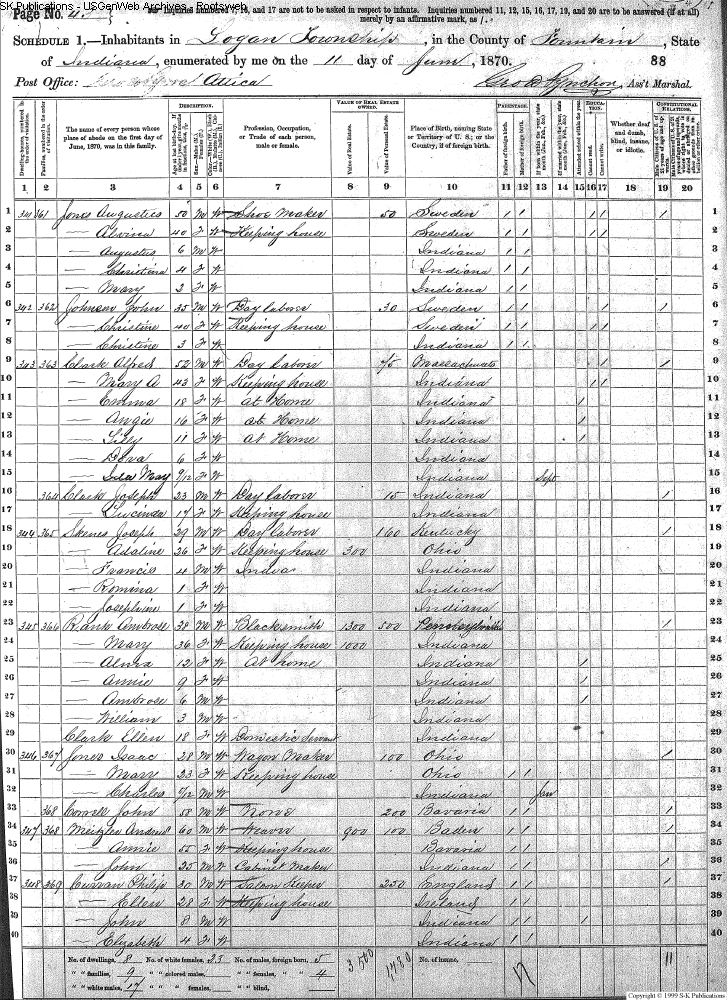 SK Publications - USGenWeb Archives - Rootsweb
Page No. 4
Inquiries numbered 7, 16, and 17 are not to be asked in respect to infants. Inquiries numbered 11, 12, 15, 16, 17, 19, and 20 are to be answered (if at all) merely by an affirmative mark, as /.
SCHEDULE 1.—Inhabitants in Logan Township, in the County of Fountain, State
of Indiana, enumerated by me on the 11 day of June, 1870. 88
Post Office: Attica Ass't Marshal.
DESCRIPTION. VALUE OF REAL ESTATE OWNED. PARENTAGE. EDUCATION. CONSTITUTIONAL RELATIONS.
The name of every person whose place of abode on the first day of June, 1870, was in this family.
Profession, Occupation, or Trade of each person, male or female.
Value of Real Estate. Value of Personal Estate.
Place of Birth, naming State or Territory of U. S.; or the Country, if of foreign birth.
Father of foreign birth. Mother of foreign birth.
Attended school within the year. Cannot read. Cannot write.
Whether deaf and dumb, blind, insane, or idiotic.
1 2 3 4 5 6 7 8 9 10 11 12 13 14 15 16 17 18 19 20
1 341 361 Jones Augustus 50 M W Shoe Maker 50 Sweden / / / / / 1
2 — Alvina 40 F W Keeping house Sweden / / / / 2
3 — Augustus 6 M W Indiana / / 3
4 — Christina 4 F W Indiana / / 4
5 — Mary 2 F W Indiana / / 5
6 342 362 Johnson John 35 M W Day laborer 30 Sweden / / / / 6
7 — Christine 40 F W Keeping house Sweden / / / / 7
8 — Christine 3 F W Indiana / / 8
9 343 363 Clark Alfred 52 M W Day laborer Massachusets / / 9
10 — Mary A 43 F W Keeping house Indiana / / 10
11 — Emma 18 F W at Home Indiana / 11
12 — Angie 16 F W at Home Indiana / 12
13 — Lily 11 F W at Home Indiana / 13
14 — 6 F W Indiana 14
15 — May 9/12 F W Indiana Sept 15
16 364 Clark Joseph 23 M W Day laborer 15 Indiana / 16
17 — Lucinda 17 F W Keeping house Indiana 17
18 344 365 Skenes Joseph 29 M W Day laborer 160 Kentucky / 18
19 — Adaline 26 F W Keeping house 300 Ohio 19
20 — Francis 4 M W India Indiana 20
21 — Romina 1 F W Indiana 21
22 — Josephine 1 F W Indiana 22
23 345 366 Rank Ambrose 38 M W Blacksmith 1300 500 Pennsylvania / 23
24 — Mary 36 F W Keeping house 1000 Indiana 24
25 — 12 F W At home Indiana / 25
26 — Annie 9 F W Indiana / 26
27 — Ambrose 6 M W Indiana / 27
28 — William 3 M W Indiana 28
29 Clark Ellen 18 F W Domestic Servant Indiana 29
30 346 367 Jones Isaac 28 M W Wagon Maker 100 Ohio / 30
31 — Mary 23 F W Keeping house Ohio / / 31
32 — Charles M W Indiana Jan 32
33 368 John 58 M W None 200 Bavaria / / / 33
34 347 368 60 M W Weaver 900 100 Baden / / / 34
35 — Annie 55 F W Keeping house Bavaria / / 35
36 — John 25 M W Cabinet Maker Indiana / / / 36
37 348 369 Curran Philip 30 M W Saloon Keeper 250 England / / / 37
38 — Ellen 28 F W Keeping house Ireland / / 38
39 — John 8 M W Indiana / / / 39
40 — Elizabeth 4 F W Indiana / / 40
No. of dwellings, 8 No. of white females, 23 No. of males, foreign born, 5 No. of insane,
" " families, 9 " " colored males, " " females, " " 4
" " white males, 17 " " " females, " " blind,
3500 11
Copyright © 1999 S-K Publications